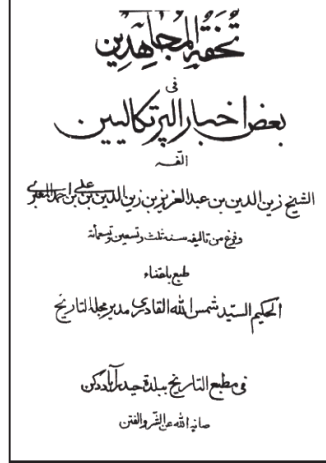 تحفة المجاهدين
فى
بعض اخبار البرتكاليين
الفه
الشيخ زين الدين بن عبد العزيز بن زين الدين بن على بن احمد المعبرى
وفرغ من تاليفه سنه ثلث وتسعين وتسعمائة
طبع باعتناء
الحكيم السيد شمس الله القادرى مدير مجلة التاريخ
فى مطبع التاريخ ببلدة حيدرآباد دكن
صانه الله عن الشر و الفتن